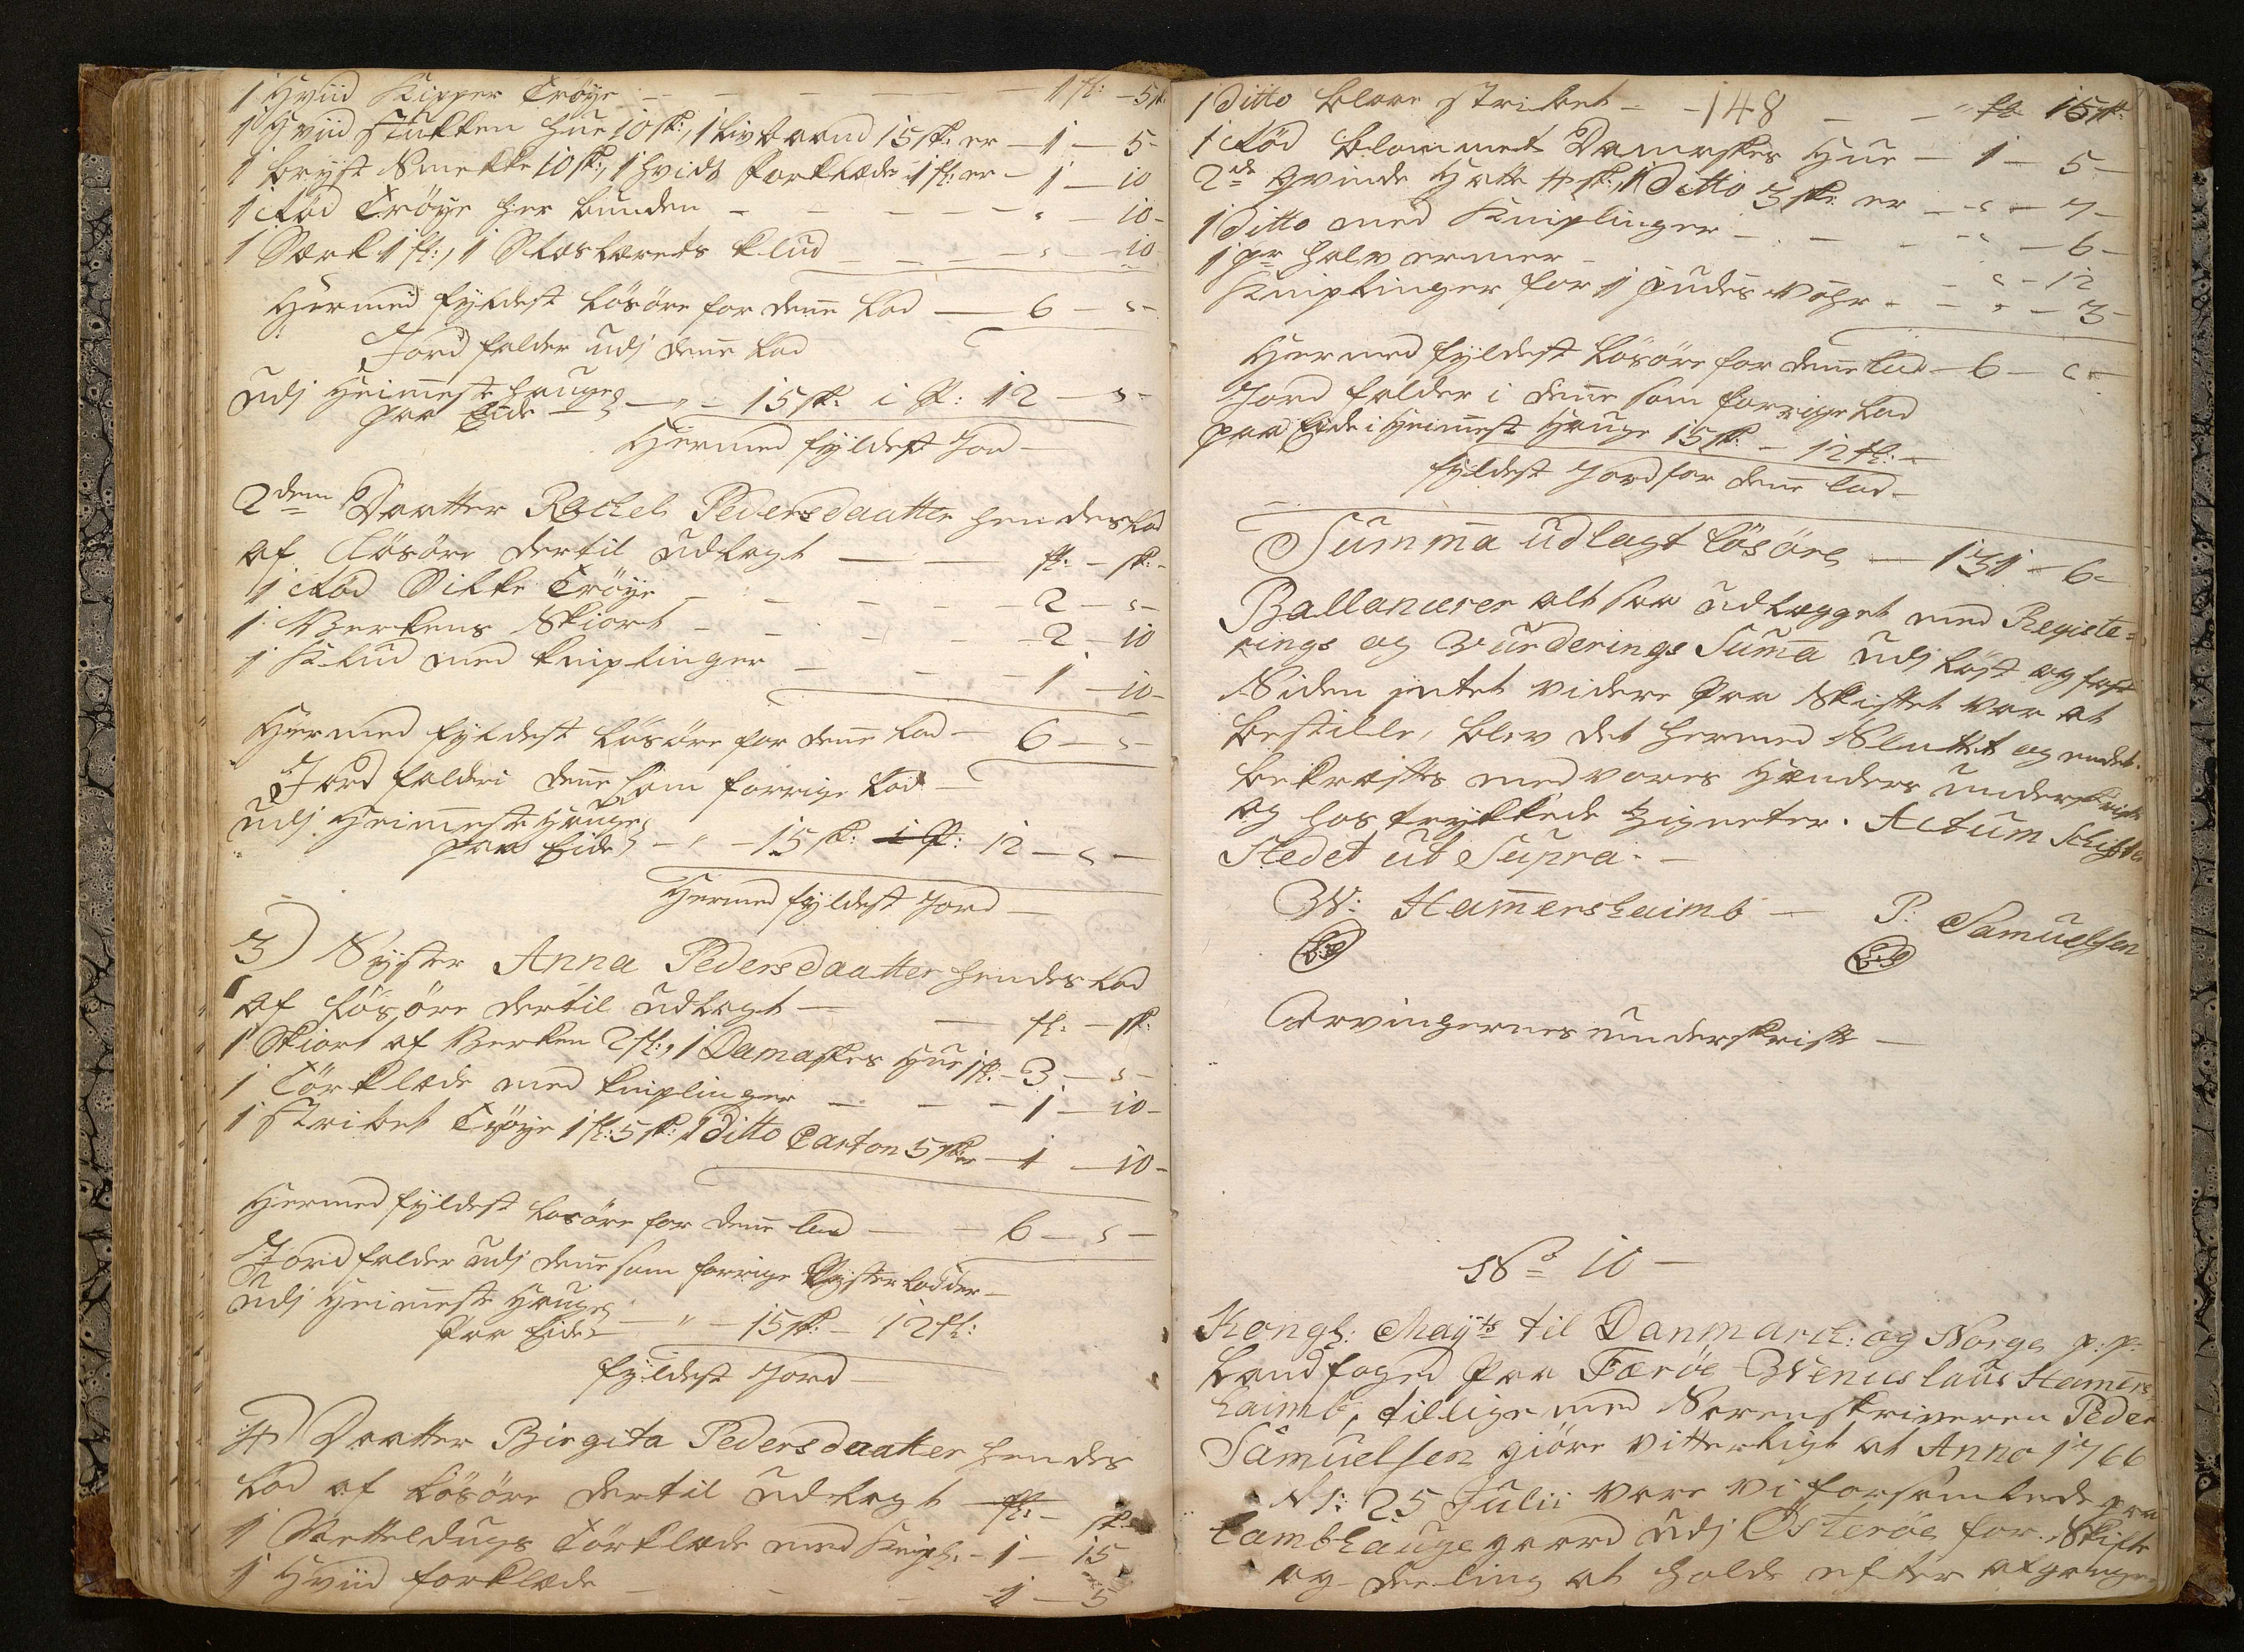 1 Hviid Kipper Trøye — — — 1 fl: — 5 sk
1 Hviid stukken Hue 10 sk:, 1 Livbaand 15 sk: er — 1 — 5 -
1 bryst Smekke 10 sk:, 1 hvidt Forklæde 1 fl: er — 1 — 10
1 Rød Trøye her bunden — — — " — 10 -
1 Særk 1 fl:, 1 klud — — " — 10
Hermed fyldest Løsöre for deñe Lod — 6 — " -
Jord falder udj deñe Lod
udj Heimest Hauge
paa Eide — " — 15 sk: i fl: 12 — " -
Hermed fyldest Jord —
2dem Daatter Rachel Pedersdaatter hendes Lod
af Løsöre dertil udlagt — — fl: — sk: -
1 Rød Silke Trøye — — — 2 — " -
1 Verkens Skiort — — — 2 — 10
1 Klud med kniplinger — — — 1 — 10 -
Hermed fyldest Løsöre for deñe Lod — 6 — " -
Jord falder i deñe som forrige Lod —
udj Heimest Hauge
paa Eide — " — 15 sk: i fl: 12 — " —
Hermed fyldest Jord —
3) Syster Anna Pedersdaatter hendes Lod
af Løsöre dertil udlagt — — fl: — sk:
1 Skiort af Verken 2 fl:, 1 Damaskes Hue 1 fl: — 3 — " -
1 Tørklæde med kniplinger — — — 1 — 10 -
1 stribet Trøye 1 fl: 5 sk: 1 Ditto Carton 5 sk: er — 1 — 10 -
Hermed fyldest Løsöre for deñe Lod — — 6 — " —
Jord falder udj deñe som forrige Syster Lodder —
udj Heimeste Hauge
paa Eide — " — 15 sk: — 12 fl:
fyldest Jord —
4) Daatter Birgita Pedersdaatter hendes
Lod af Løsöre dertil udlagt — fl: — sk: -
1 Netteldugs Tørklæde med Knipl: — 1 — 15
1 Hviid forklæde — — — 1 — 5
148
1 Ditto blaae stribet — — " fl: 15 sk:
1 Rød blommet Damaskes Hue — 1 — 5 —
2de Qvinde Hatte 4 sk:, 1 Ditto 3 sk: er — " — 7 —
1 Ditto med Kniplinger — — — " — 6 —
1 pr halv ermer — — " — 12
Kniplinger for 1 — — " — 3 —
Hermed fyldest Løsöre for deñe Lod — 6 — " —
Jord falder i deñe som forrige Lod
paa Eide i Heimest Hauge 15 sk: — 12 fl: —
fyldest Jord for deñe Lod —
Sum̃a udlagt Løsöre — 131 — 6 -
Ballancerer alt saa udlægget med Registe=
rings og Vurderings Sum̃a udj Løst og fast
Siden intet videre paa Skiftet var at
bestille, blev det hermed Sluttet og endet
bekræftes med vores Hænders underskrift
og hos trykkede Zigneter. Actum Skifte
Stedet ut Supra. —
W: Ham̃ershaimb — P: Samuelsen
L.S. L.S.
Arvingernes underskrift —
No 10 —
Kongl: Mayts til Danmarck: og Norge p. p.
Landfoged paa Færöe Wenceslaus Ham̃ers
haimb, tillige med Sorenskriveren Peder
Samuelsen giöre vitterligt at Anno 1766
d. 25 Julii vare vi forsamlede paa
Lambhauge gaard udj Österöe for Skifte
og deeling at holde efter afgangne